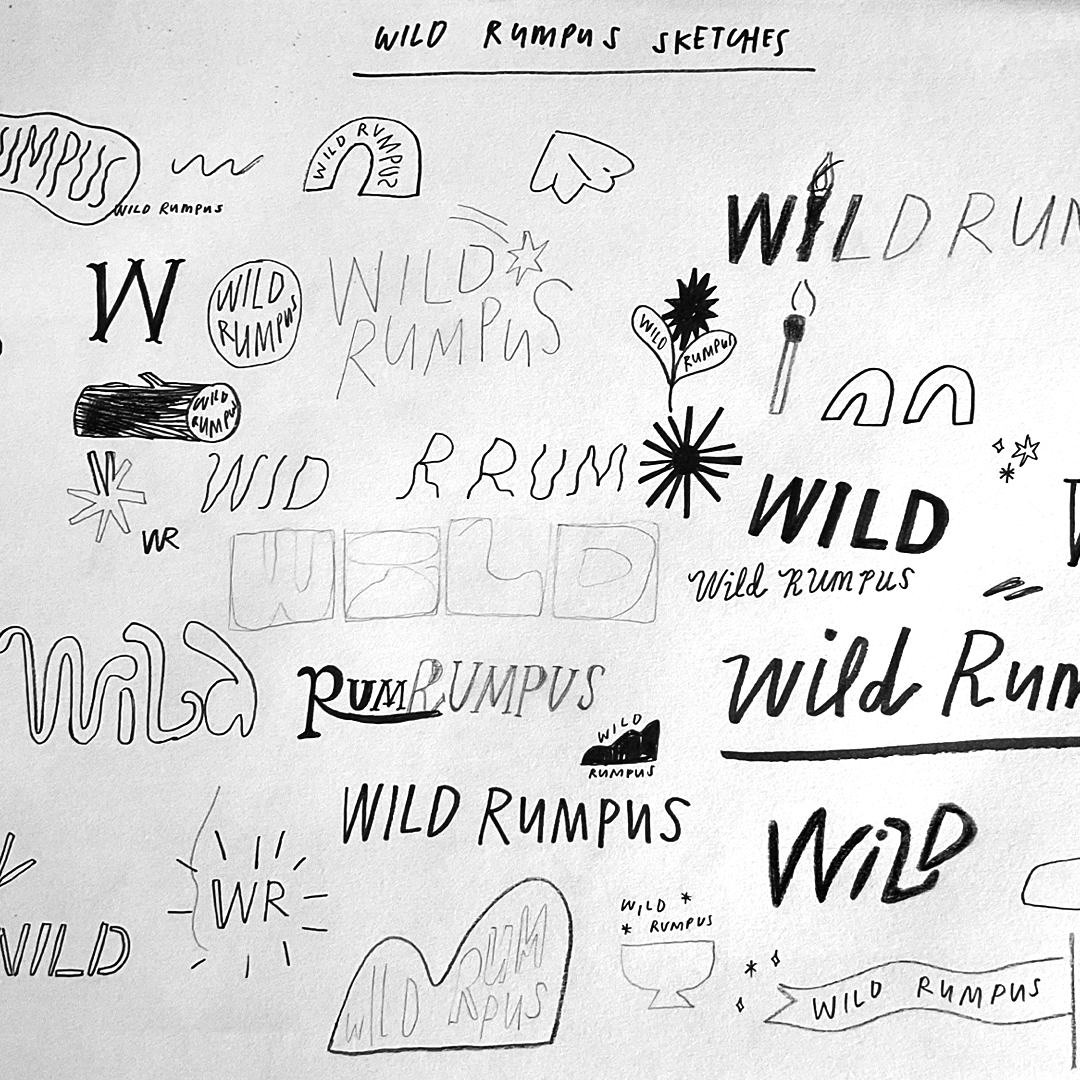 WILD RUMPUS SKETCHES
UMPUS
WILD RUMPUS
WILD RUMPUS
WILD RUN
W
WILD
RUMPUS
WILD
RUMPUS
WILD
RUMPUS
WILD
RUMPUS
WID
R RUM
WR
WILD
WILD
Wild RUMPUS
WiLd
RUMRUMPUS
WILD
RUMPUS
Wild Rum
WILD RUMPUS
WiLD
WR
WILD
WILD
RUMPUS
WILD
RUM
RPUS
WILD RUMPUS